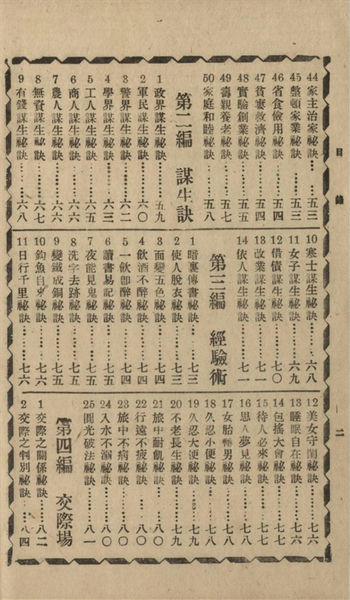 目錄
44家主治家秘訣……五三
45整頓家業秘訣……五三
46省食儉用秘訣……五四
47貧寠救濟秘訣……五四
48實驗創業秘訣……五五
49壽親養老秘訣……五七
50家庭和睦秘訣……五八
第二編 謀生訣
1政界謀生秘訣……五九
2軍民謀生秘訣……六〇
3警界謀生秘訣……六二
4學界謀生秘訣……六三
5工人謀生秘訣……六五
6商人謀生秘訣……六六
7農人謀生秘訣……六六
8無資謀生秘訣……六七
9有錢謀生秘訣……六八
10寒士謀生秘訣……六八
11女子謀生秘訣……六九
12借債謀生秘訣……七〇
13改業謀生秘訣……七一
14依人謀生秘訣……七一
第三編 經驗術
1暗裏傳書秘訣……七三
2使人脫衣秘訣……七三
3面變五色秘訣……七四
4飲酒不醉秘訣……七四
5一飲即醉秘訣……七四
6讀書易記秘訣……七五
7夜能見鬼秘訣……七五
8洗字去跡秘訣……七五
9變鐵成銅秘訣……七五
10釣魚自來秘訣……七六
11日行千里秘訣……七六
二
12美女守閨秘訣……七六
13睡眠自在秘訣……七六
14包搖大會秘訣……七七
15待人必來秘訣……七七
16思人夢見秘訣……七八
17女胎轉男秘訣……七八
18久忍小便秘訣……七九
19久忍大便秘訣……七九
20不老長生秘訣……七九
21旅中耐飢秘訣……八〇
22行遠不疲秘訣……八〇
23旅中不病秘訣……八〇
24入水不溺秘訣……八〇
25圓光破法秘訣……八一
第四編 交際場
1交際之關係秘訣……八二
2交際之判別秘訣……八四